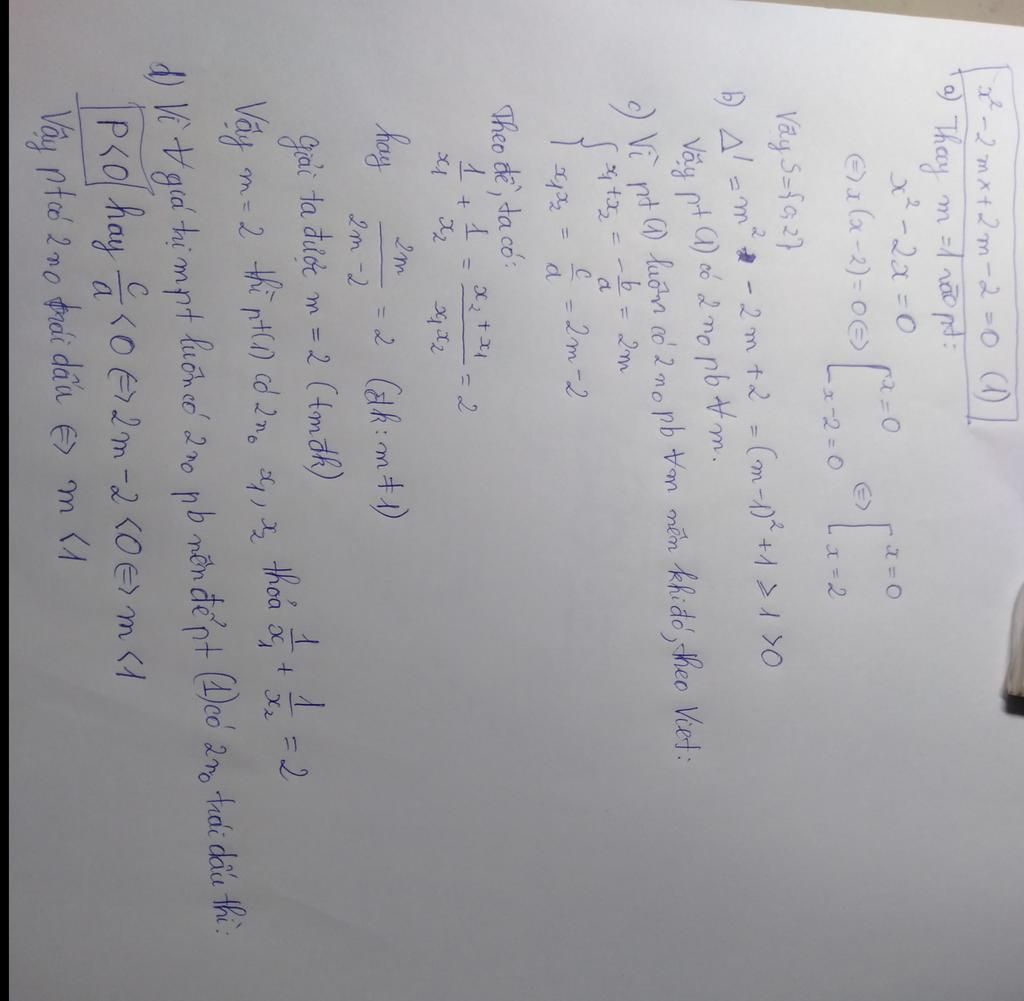 x² - 2mx + 2m - 2 = 0 (1)
a) Thay m = 1 vào pt:
x² - 2x = 0
⇔ x(x - 2) = 0 ⇔ [ x = 0 ; x - 2 = 0 ⇔ [ x = 0 ; x = 2
Vậy S = {0, 2}
b) Δ' = m² - 2m + 2 = (m - 1)² + 1 ≥ 1 > 0
Vậy pt (1) có 2 n₀ pb ∀m.
c) Vì pt (1) luôn có 2 n₀ pb ∀m nên khi đó, theo Viet:
{ x₁ + x₂ = -b/a = 2m
x₁x₂ = c/a = 2m - 2
Theo đề, ta có:
1/x₁ + 1/x₂ = (x₂ + x₁)/(x₁x₂) = 2
hay 2m/(2m - 2) = 2 (đk: m ≠ 1)
Giải ta được m = 2 (tmđk)
Vậy m = 2 thì pt (1) có 2 n₀ x₁, x₂ thoả 1/x₁ + 1/x₂ = 2
d) Vì ∀ giá trị m pt luôn có 2 n₀ pb nên để pt (1) có 2 n₀ trái dấu thì:
P < 0 hay c/a < 0 ⇔ 2m - 2 < 0 ⇔ m < 1
Vậy pt có 2 n₀ trái dấu ⇔ m < 1